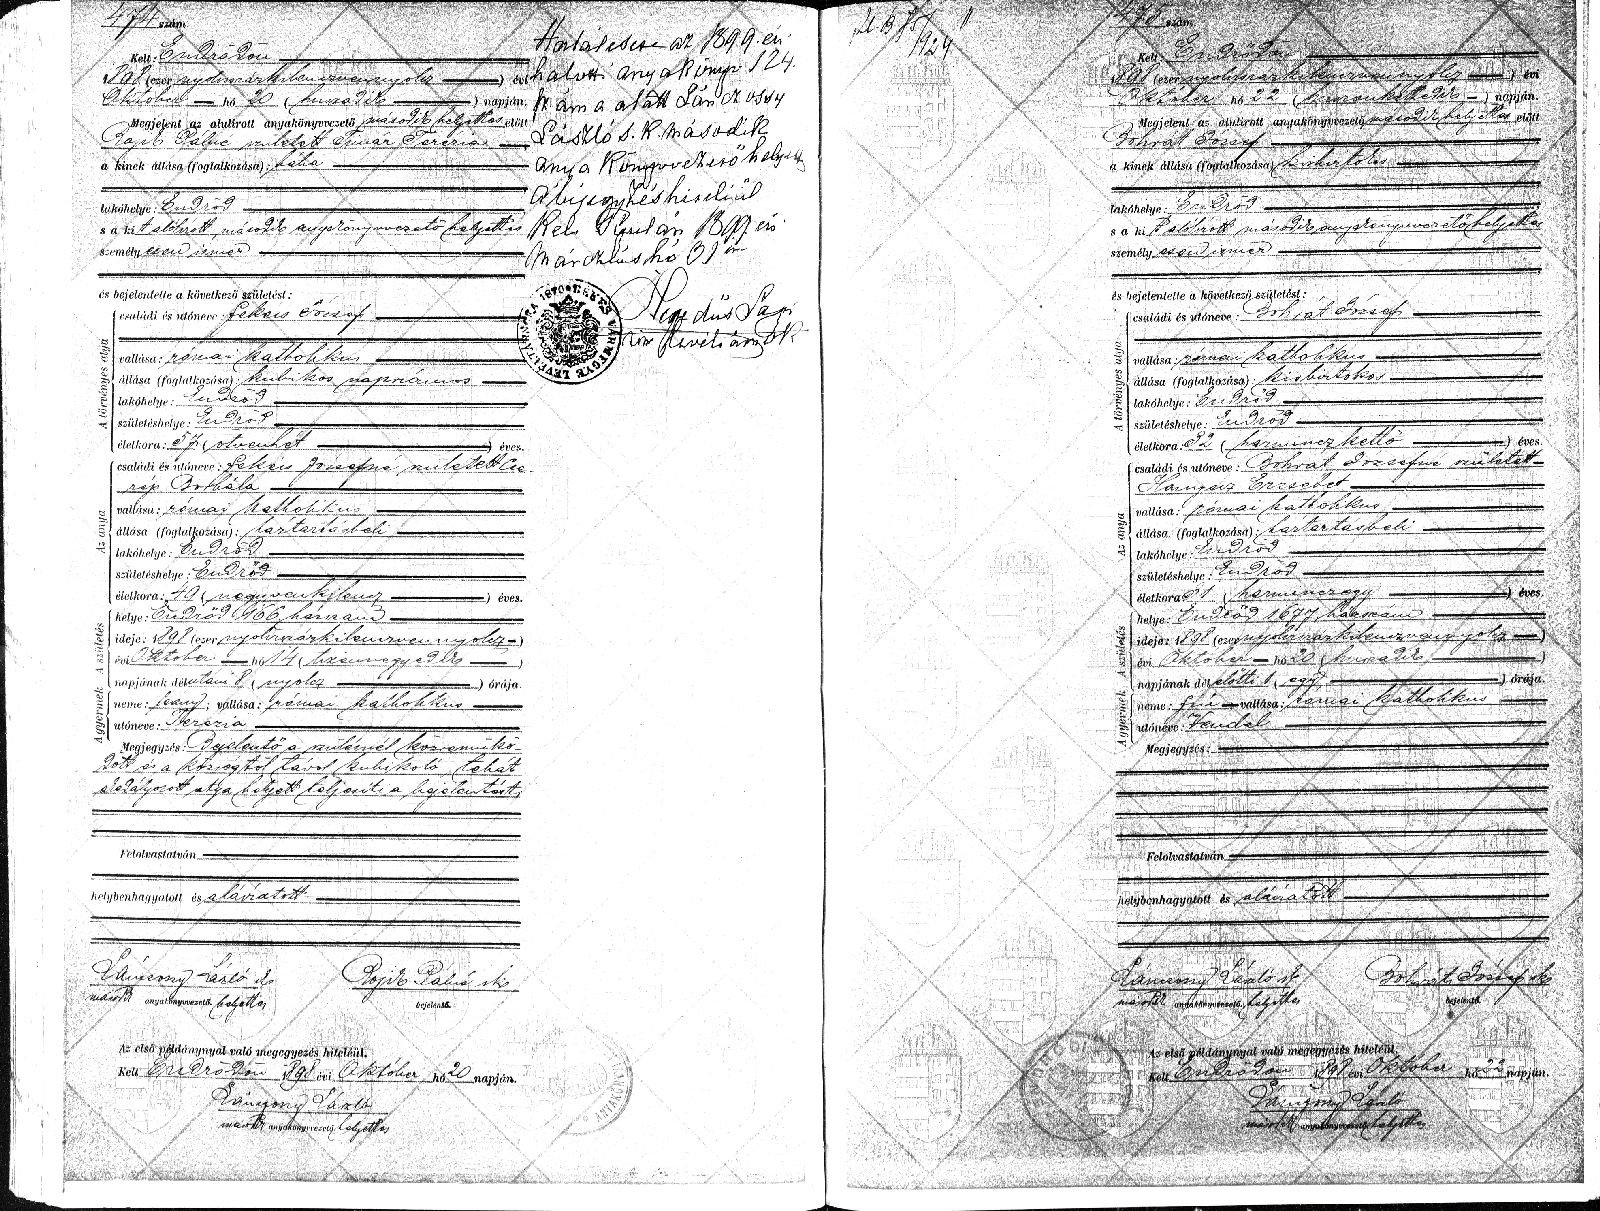 474 szám.
Kelt Endrődön
1898 (ezer nyolczszázkilenczvennyolcz) évi
Október hó 20 (huszadik) napján.
Megjelent az alulirott anyakönyvvezető második helyettes előtt
Pálné született Terézia
a kinek állása (foglalkozása): bába
lakóhelye: Endrőd
s a kit alólirott második anyakönyvvezető helyettes
személyesen ismer
és bejelentette a következő születést:
A törvényes atyja
családi és utóneve: József
vallása: római katholikus
állása (foglalkozása): kubikos napszámos
lakóhelye: Endrőd
születéshelye: Endrőd
életkora: 57 (ötvenhét) éves.
Az anya
családi és utóneve: Józsefné született Cse-
rép Borbála
vallása: római katholikus
állása (foglalkozása): háztartásbeli
lakóhelye: Endrőd
születéshelye: Endrőd
életkora: 49 (negyvenkilencz) éves.
A születés
helye: Endrőd 966 házszám
ideje: 1898 (ezer nyolczszázkilenczvennyolcz)
évi Október hó 14 (tizennegyedik)
napjának délutáni 8 (nyolcz) órája.
A gyermek
neme: leány; vallása: római katholikus
utóneve: Terézia
Megjegyzés: Bejelentő a szülésnél közreműkö-
dött és a községtől távol kubikoló tehát
akadályozott atya helyett teljesíti a bejelentést.
Felolvastatván
helybenhagyatott és aláíratott
László sk
második anyakönyvvezető helyettes
Pálné sk
bejelentő.
Az első példánynyal való megegyezés hiteléül.
Kelt Endrődön 1898 évi Október hó 20 napján.
László
második anyakönyvvezető helyettes
Halálesete az 1899. évi
halotti anyakönyv 124.
szám alatt
László s. k. második
anyakönyvvezető helyett
A bejegyzés hiteléül
Kelt Gyulán 1899 évi
Márczius hó 31 én
BÉKÉS VÁRMEGYE LEVÉLTÁRNOKA 1870
475 szám.
1924
Kelt Endrődön
1898 (ezer nyolczszázkilenczvennyolcz) évi
Október hó 22 (huszonkettedik) napján.
Megjelent az alulirott anyakönyvvezető második helyettes előtt
József
a kinek állása (foglalkozása) kisbirtokos
lakóhelye: Endrőd
s a kit alólirott második anyakönyvvezető helyettes
személyesen ismer
és bejelentette a következő születést:
A törvényes atyja
családi és utóneve: József
vallása: római katholikus
állása (foglalkozása): kisbirtokos
lakóhelye: Endrőd
születéshelye: Endrőd
életkora: 32 (harminczkettő) éves.
Az anya
családi és utóneve: Józsefné született
Erzsébet
vallása: római katholikus
állása (foglalkozása): háztartásbeli
lakóhelye: Endrőd
születéshelye: Endrőd
életkora 31 (harminczegy) éves.
A születés
helye: Endrőd 1677 házszám
ideje: 1898 (ezer nyolczszázkilenczvennyolcz)
évi Október hó 20 (huszadik)
napjának délelőtti 1 (egy) órája.
A gyermek
neme: fiú vallása: római katholikus
utóneve: Vendel
Megjegyzés:
Felolvastatván
helybenhagyatott és aláíratott
László sk
második anyakönyvvezető helyettes
József sk
bejelentő.
Az első példánynyal való megegyezés hiteléül.
Kelt Endrődön 1898 évi Október hó 22 napján.
László
második anyakönyvvezető helyettes